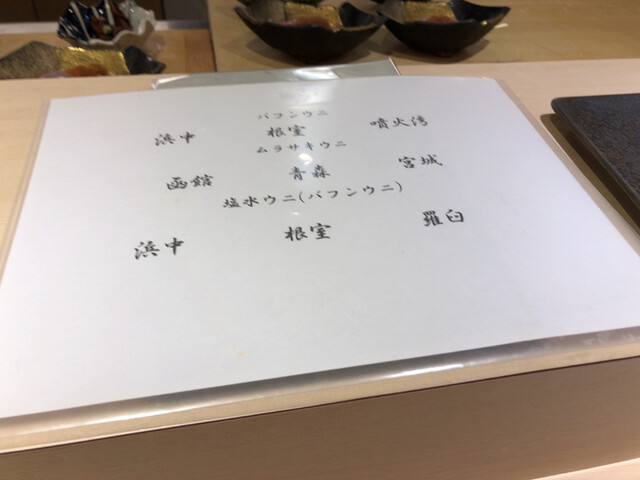 バフンウニ
浜中 根室 噴火湾
ムラサキウニ
函館 青森 宮城
塩水ウニ(バフンウニ)
浜中 根室 羅臼